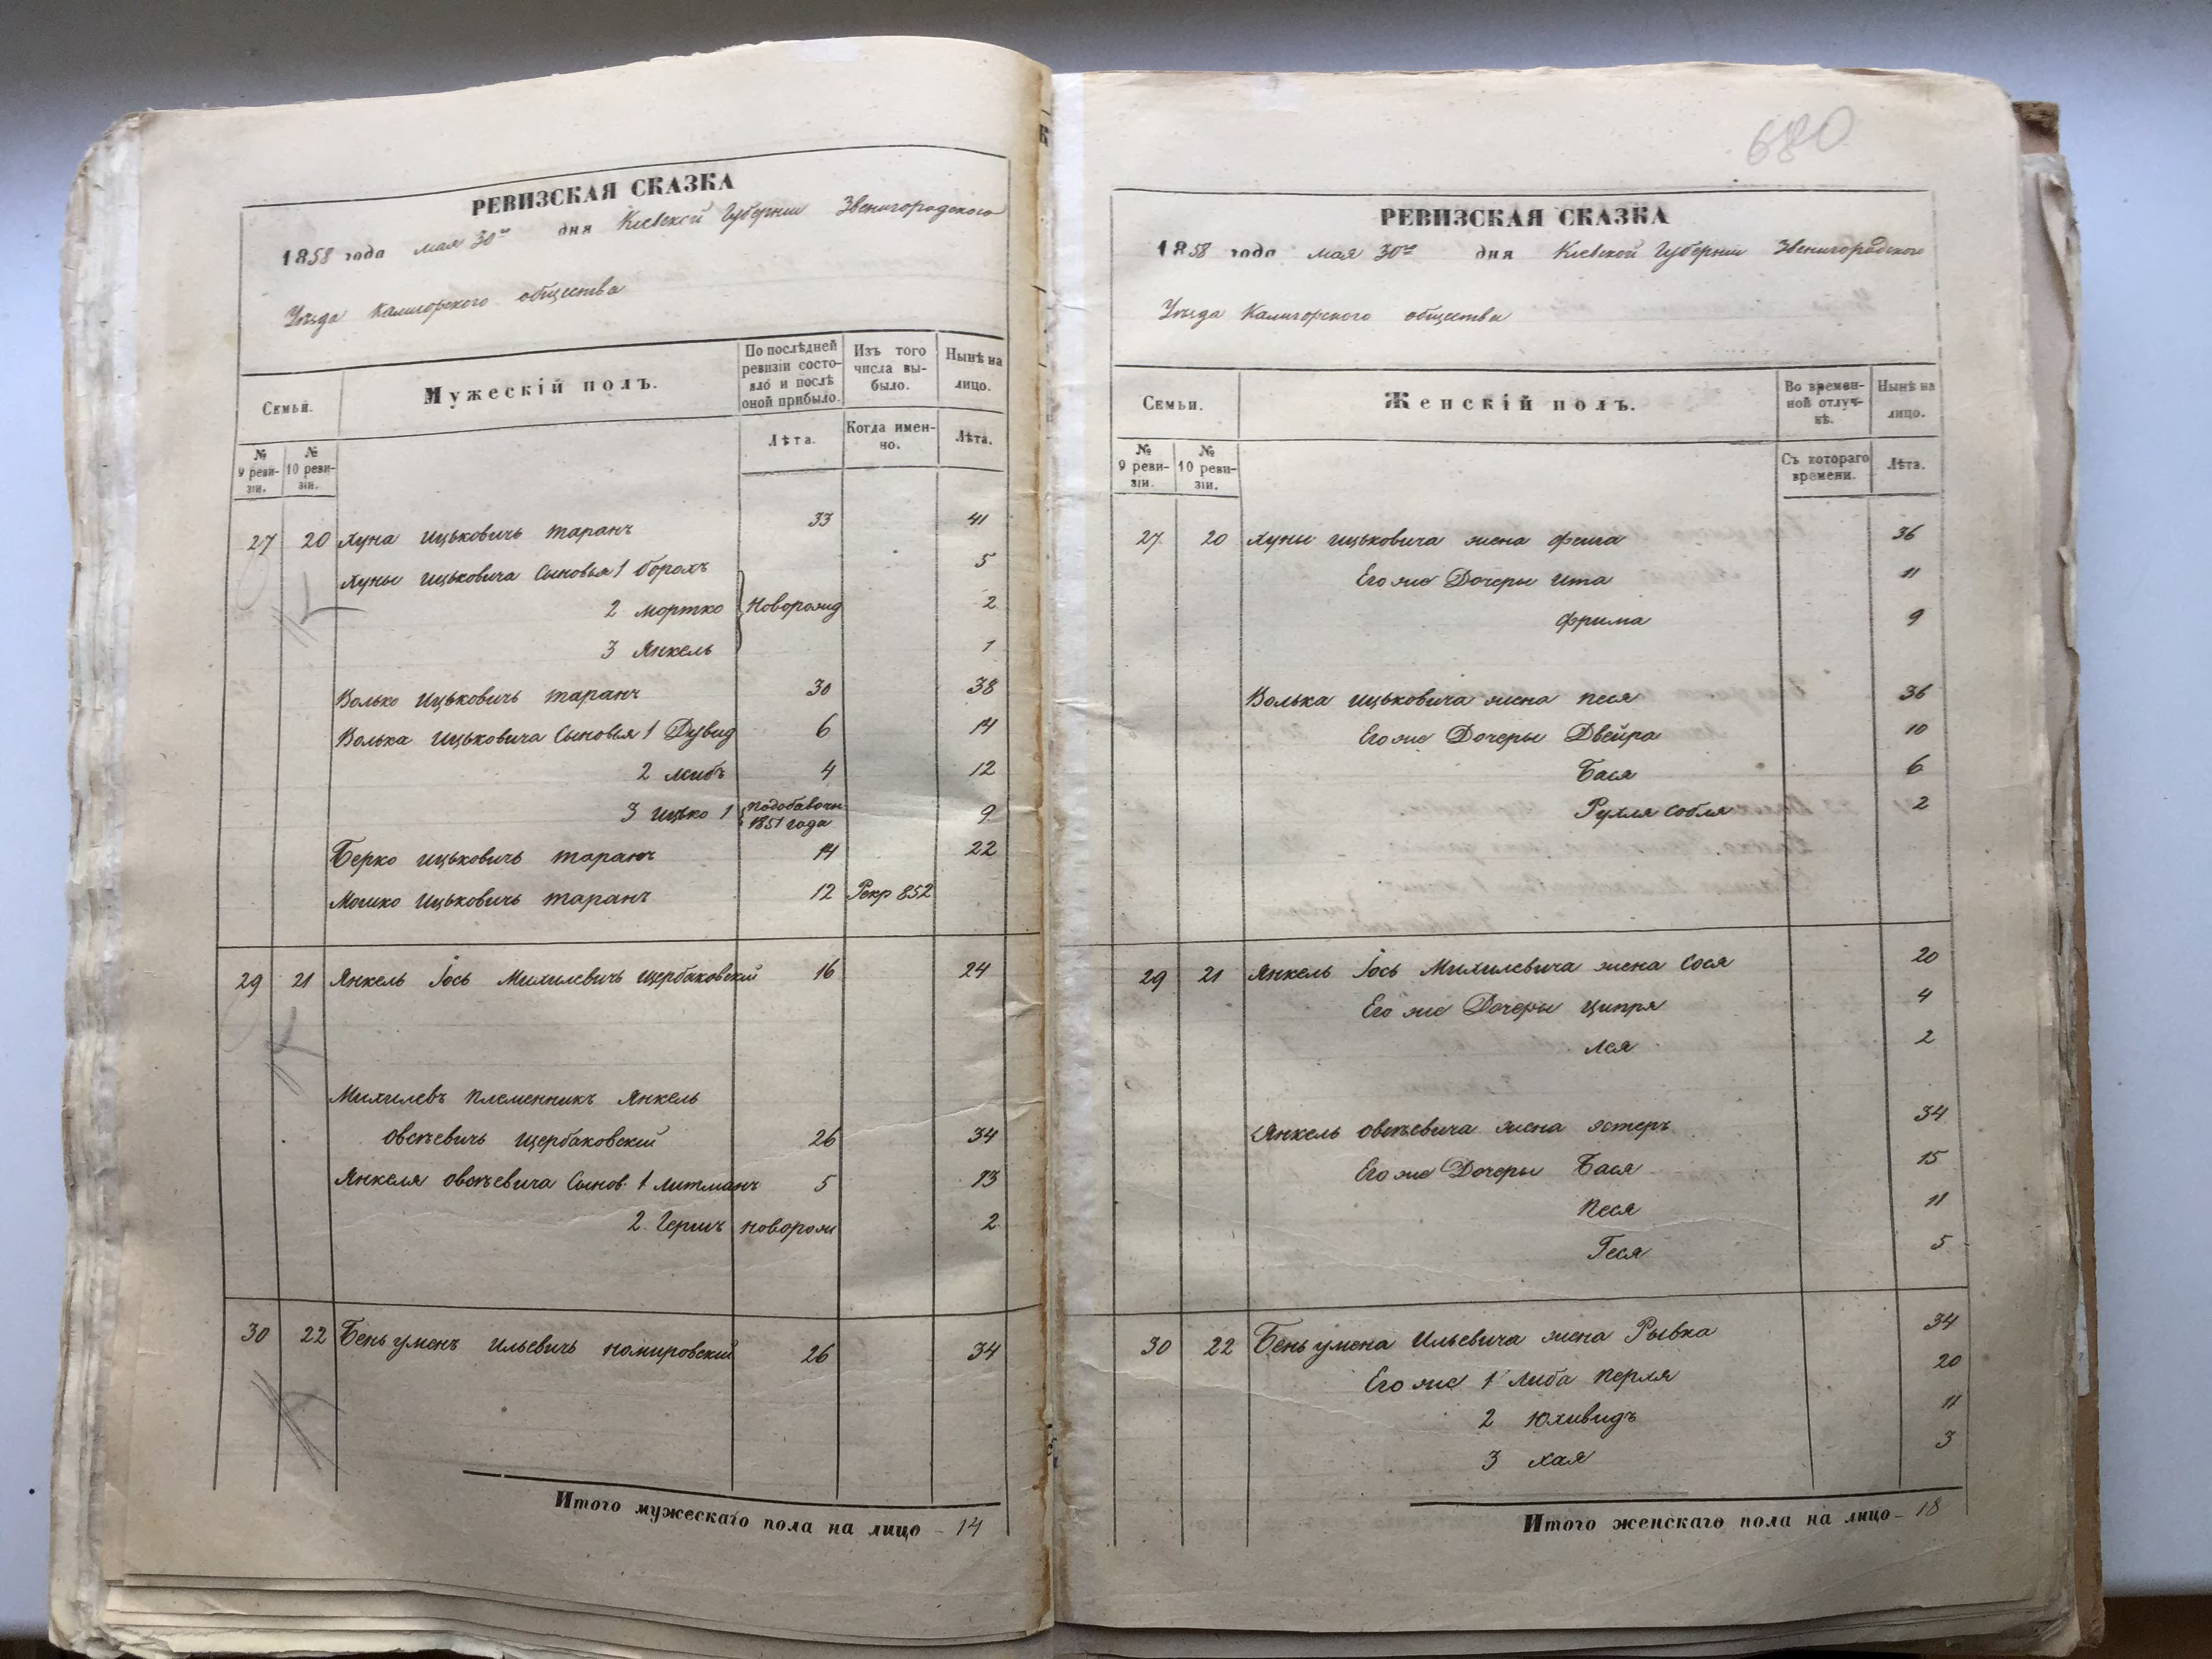 РЕВИЗСКАЯ СКАЗКА
1858 года мая 30го дня Кіевской Губерніи Звенигородского
Уѣзда Калигорского общества
Семьи.
Мужескій полъ.
По послѣдней ревизіи состояло и послѣ оной прибыло.
Изъ того числа выбыло.
Нынѣ на лицо.
№ 9 ревизіи.
№ 10 ревизіи.
Лѣта.
Когда именно.
Лѣта.
27 20 Хуна Ицьковичь таранъ 33 41
Хуны ицьковича Сыновья 1 борохъ 5
2 мортко Новорожд 2
3 Янкель 1
Волько Ицьковичь таранъ 30 38
Волька Ицьковича Сыновья 1 Дувид 6 14
2 Лейбъ 4 12
3 ицько 1 подобавочн 1851 года 9
Берко ицьковичь таранъ 14 22
Мошко Ицьковичь таранъ 12 Рекр 852
29 21 Янкель Іось Михилевичь щербаковскій 16 24
Михилевъ племенникъ Янкель
овсѣевичь щербаковскій 26 34
Янкеля овсѣевича Сынов. 1 литманъ 5 13
2 Гершъ новорож 2
30 22 Беньуменъ Ильевичь немировскій 26 34
Итого мужескаго пола на лицо - 14
680
РЕВИЗСКАЯ СКАЗКА
1858 года мая 30го дня Кіевской Губерніи Звенигородского
Уѣзда Калигорского общества
Семьи.
Женскій полъ.
Во временной отлучкѣ.
Нынѣ на лицо.
№ 9 ревизіи.
№ 10 ревизіи.
Съ котораго времени.
Лѣта.
27 20 Хуны ицьковича жена фейга 36
Его же Дочеры ита 11
фрима 9
Волька ицьковича жена песя 36
Его же Дочеры Двейра 10
Бася 6
Рухля собля 2
29 21 Янкель Іось Михилевича жена Сося 20
Его же Дочеры ципря 4
лея 2
Янкель овсѣевича жена эстеръ 34
Его же Дочеры Бася 15
песя 11
Геся 5
30 22 Беньумена Ильевича жена Рывка 34
Его же 1 либа перля 20
2 Юхивидъ 11
3 хая 3
Итого женскаго пола на лицо - 18